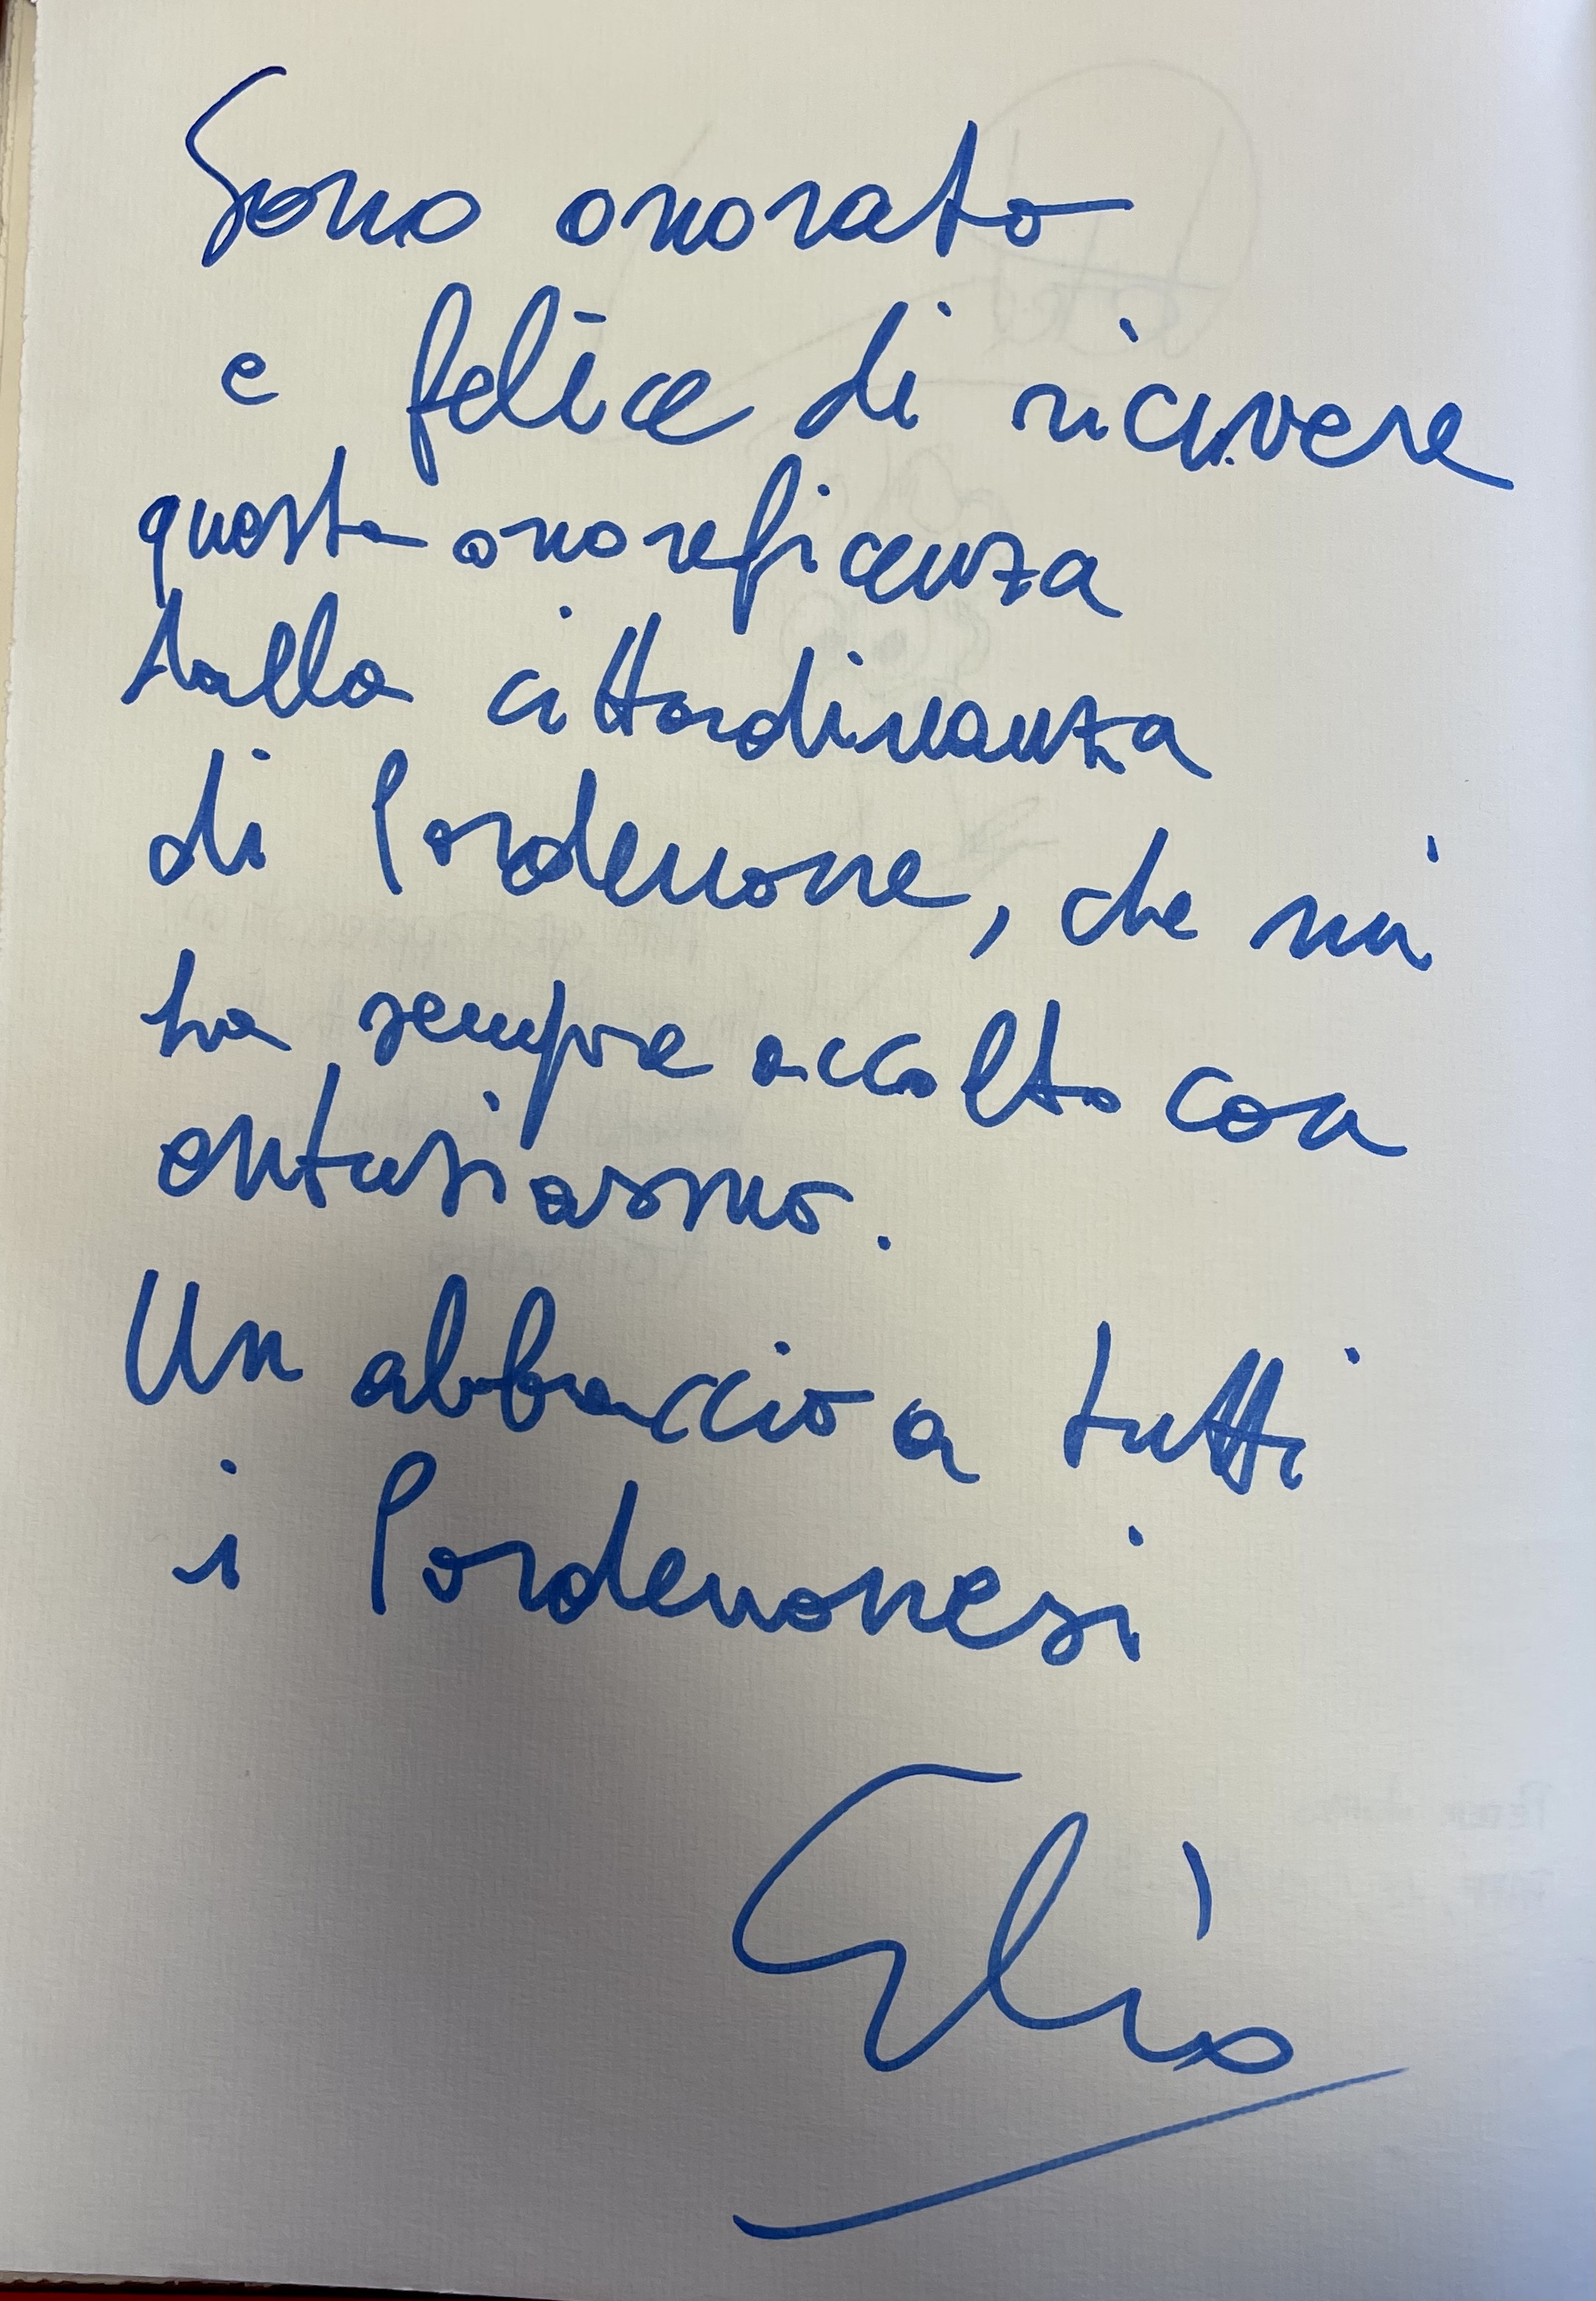 Sono onorato
e felice di ricevere
questa onoreficenza
dalla cittadinanza
di Pordenone, che mi
ha sempre accolto con
entusiasmo.
Un abbraccio a tutti
i Pordenonesi
Elio